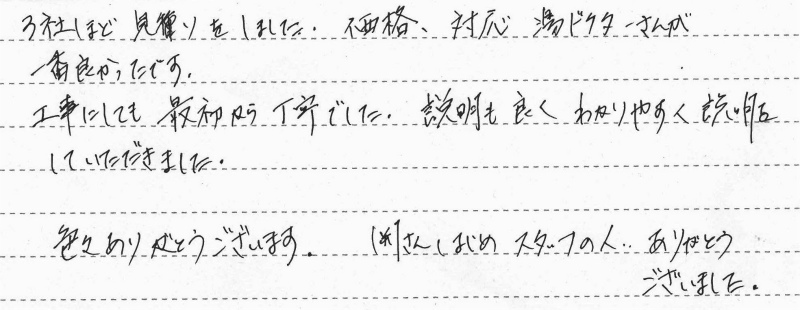 3社ほど見積りをしました. 価格、対応 湯ドクターさんが
一番良かったです.
工事にしても最初から丁寧でした. 説明も良くわかりやすく説明
していただきました.
色々ありがとうございます. さんはじめスタッフの人.. ありがとう
ございました.